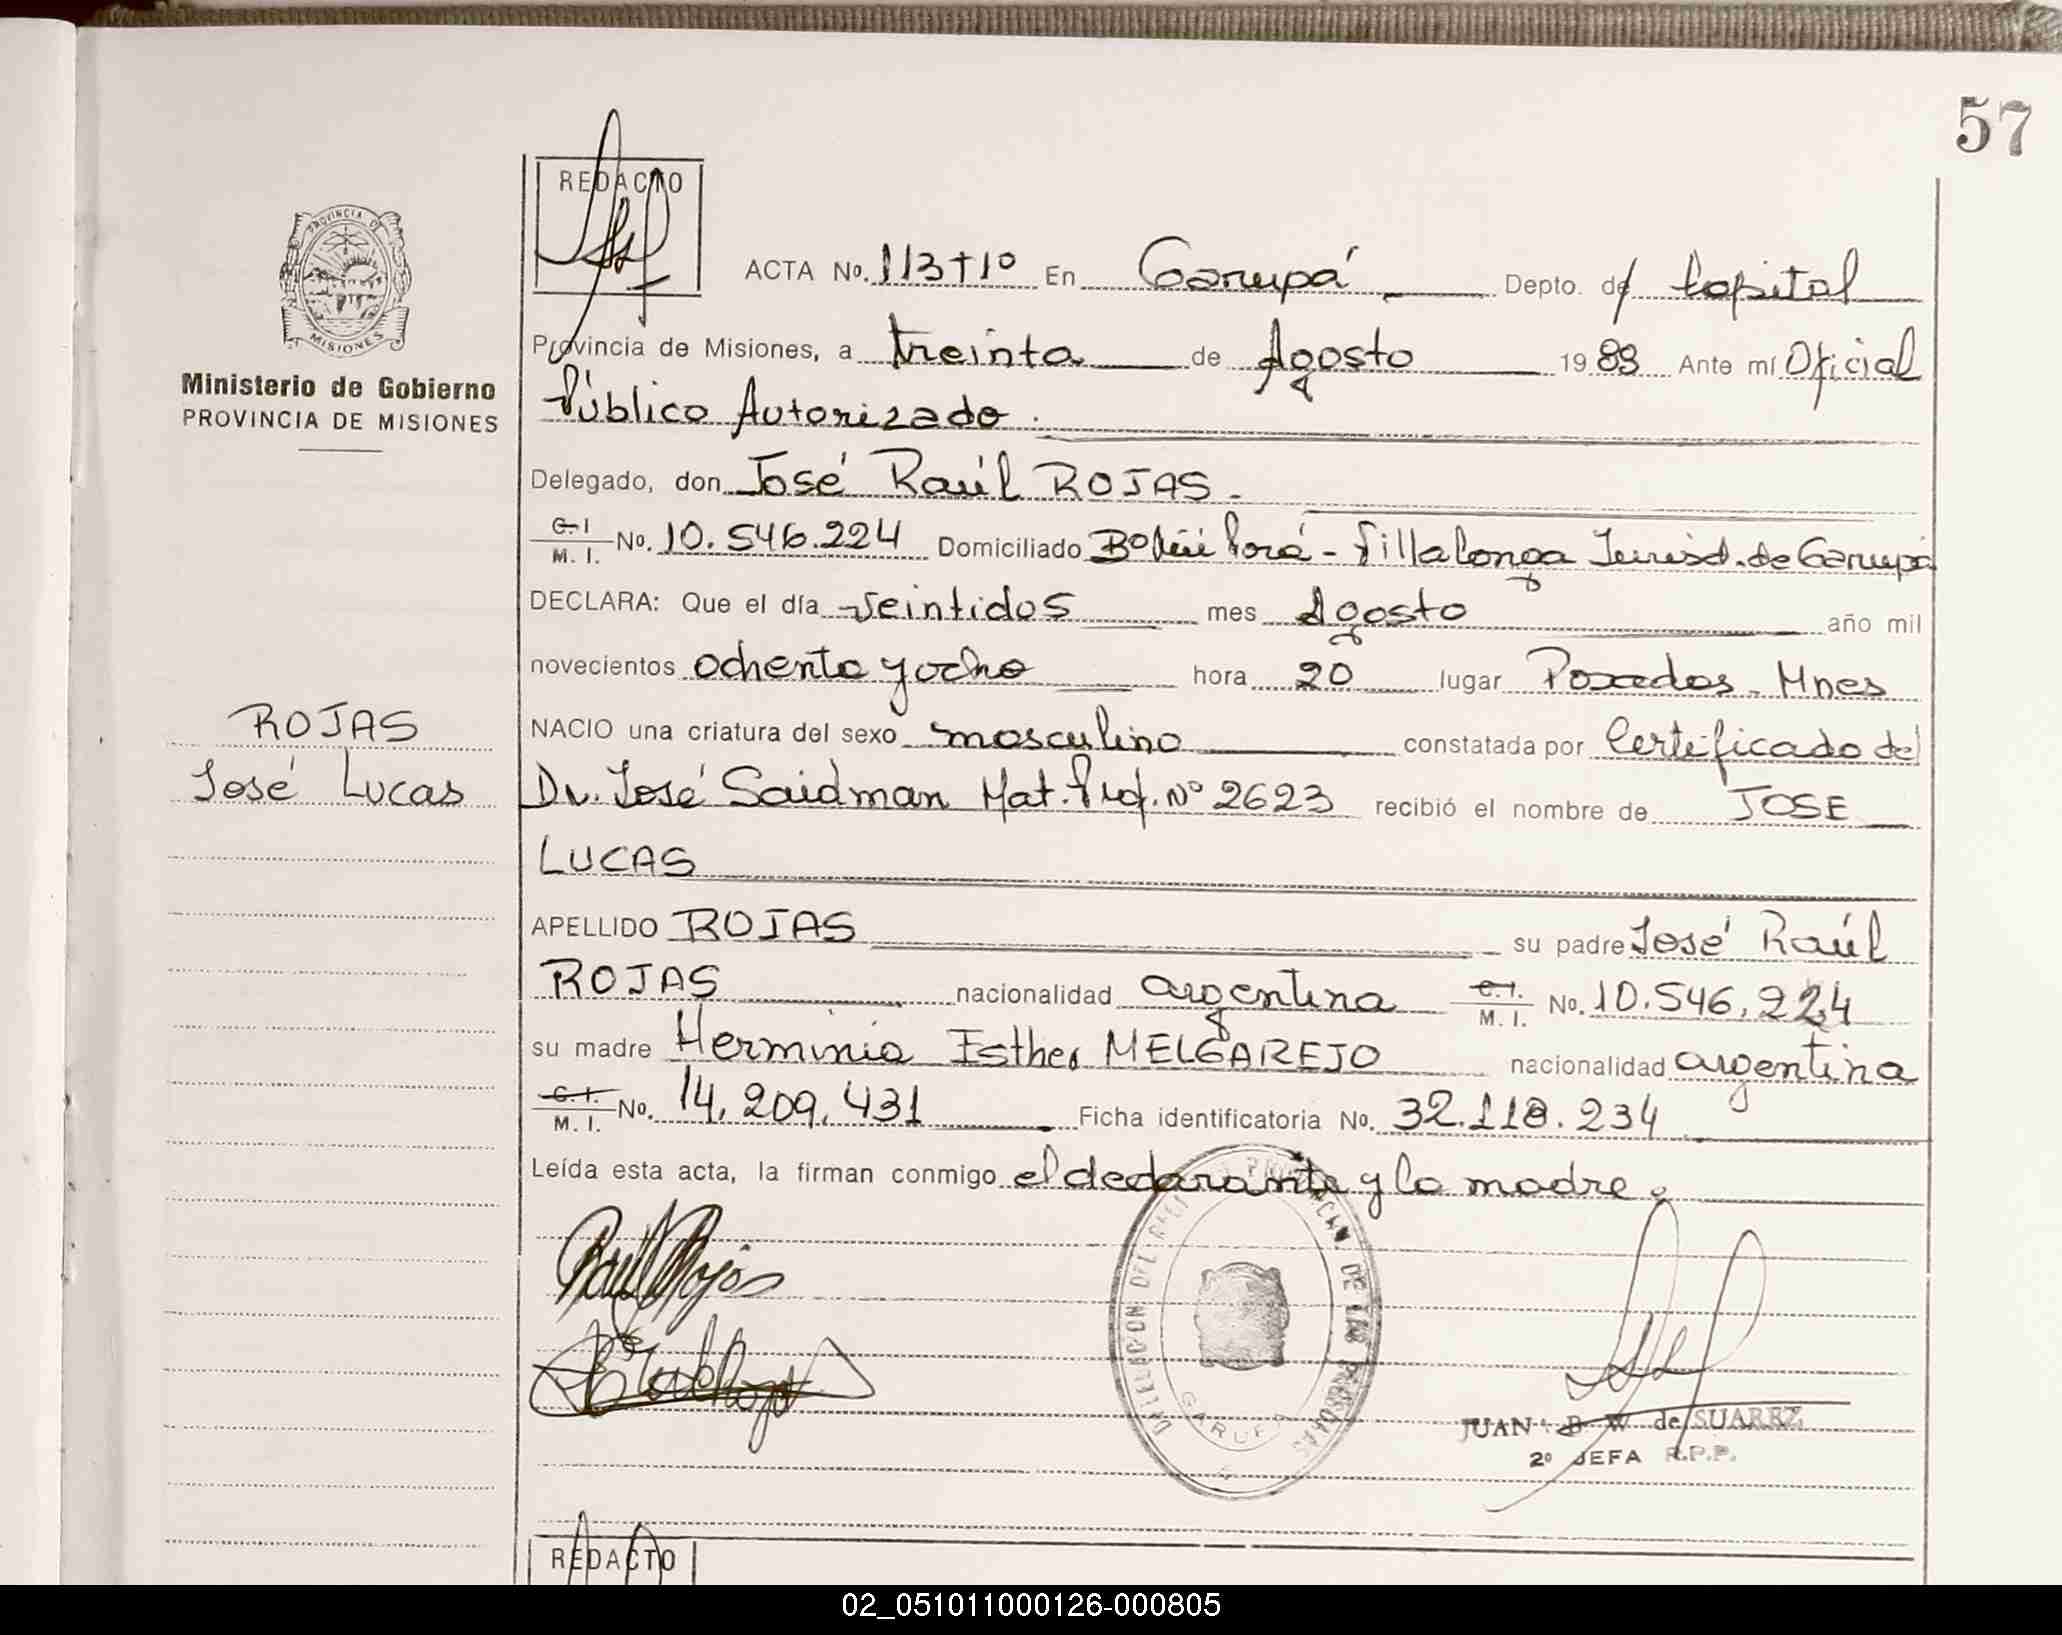 57
REDACTO
PROVINCIA DE
MISIONES
Ministerio de Gobierno
PROVINCIA DE MISIONES
ACTA No. 113 T 1º En Garupá Depto. de Capital
Provincia de Misiones, a treinta de Agosto 1988 Ante mí Oficial
Público Autorizado.
Delegado, don José Raúl ROJAS.
C. I M. I. No. 10.546.224 Domiciliado Bº Ñú Porá - Villalonga Jurisd. de Garupá
DECLARA: Que el día veintidos mes Agosto año mil
novecientos ochenta y ocho hora 20 lugar Posadas - Mnes
NACIO una criatura del sexo masculino constatada por Certificado del
Dr. José Saidman Mat. Prof. Nº 2623 recibió el nombre de JOSE
LUCAS
ROJAS
José Lucas
APELLIDO ROJAS su padre José Raúl
ROJAS nacionalidad argentina C. I. M. I. No. 10.546.224
su madre Herminia Esther MELGAREJO nacionalidad argentina
C. I. M. I. No. 14.209.431 Ficha identificatoria No. 32.118.234
Leída esta acta, la firman conmigo el declarante y la madre.
Raul Rojas
DELEGACION DEL REGISTRO PROVINCIAL DE LAS PERSONAS
GARUPA
JUANA B W de SUAREZ
2º JEFA R.P.P.
REDACTO
02_051011000126-000805